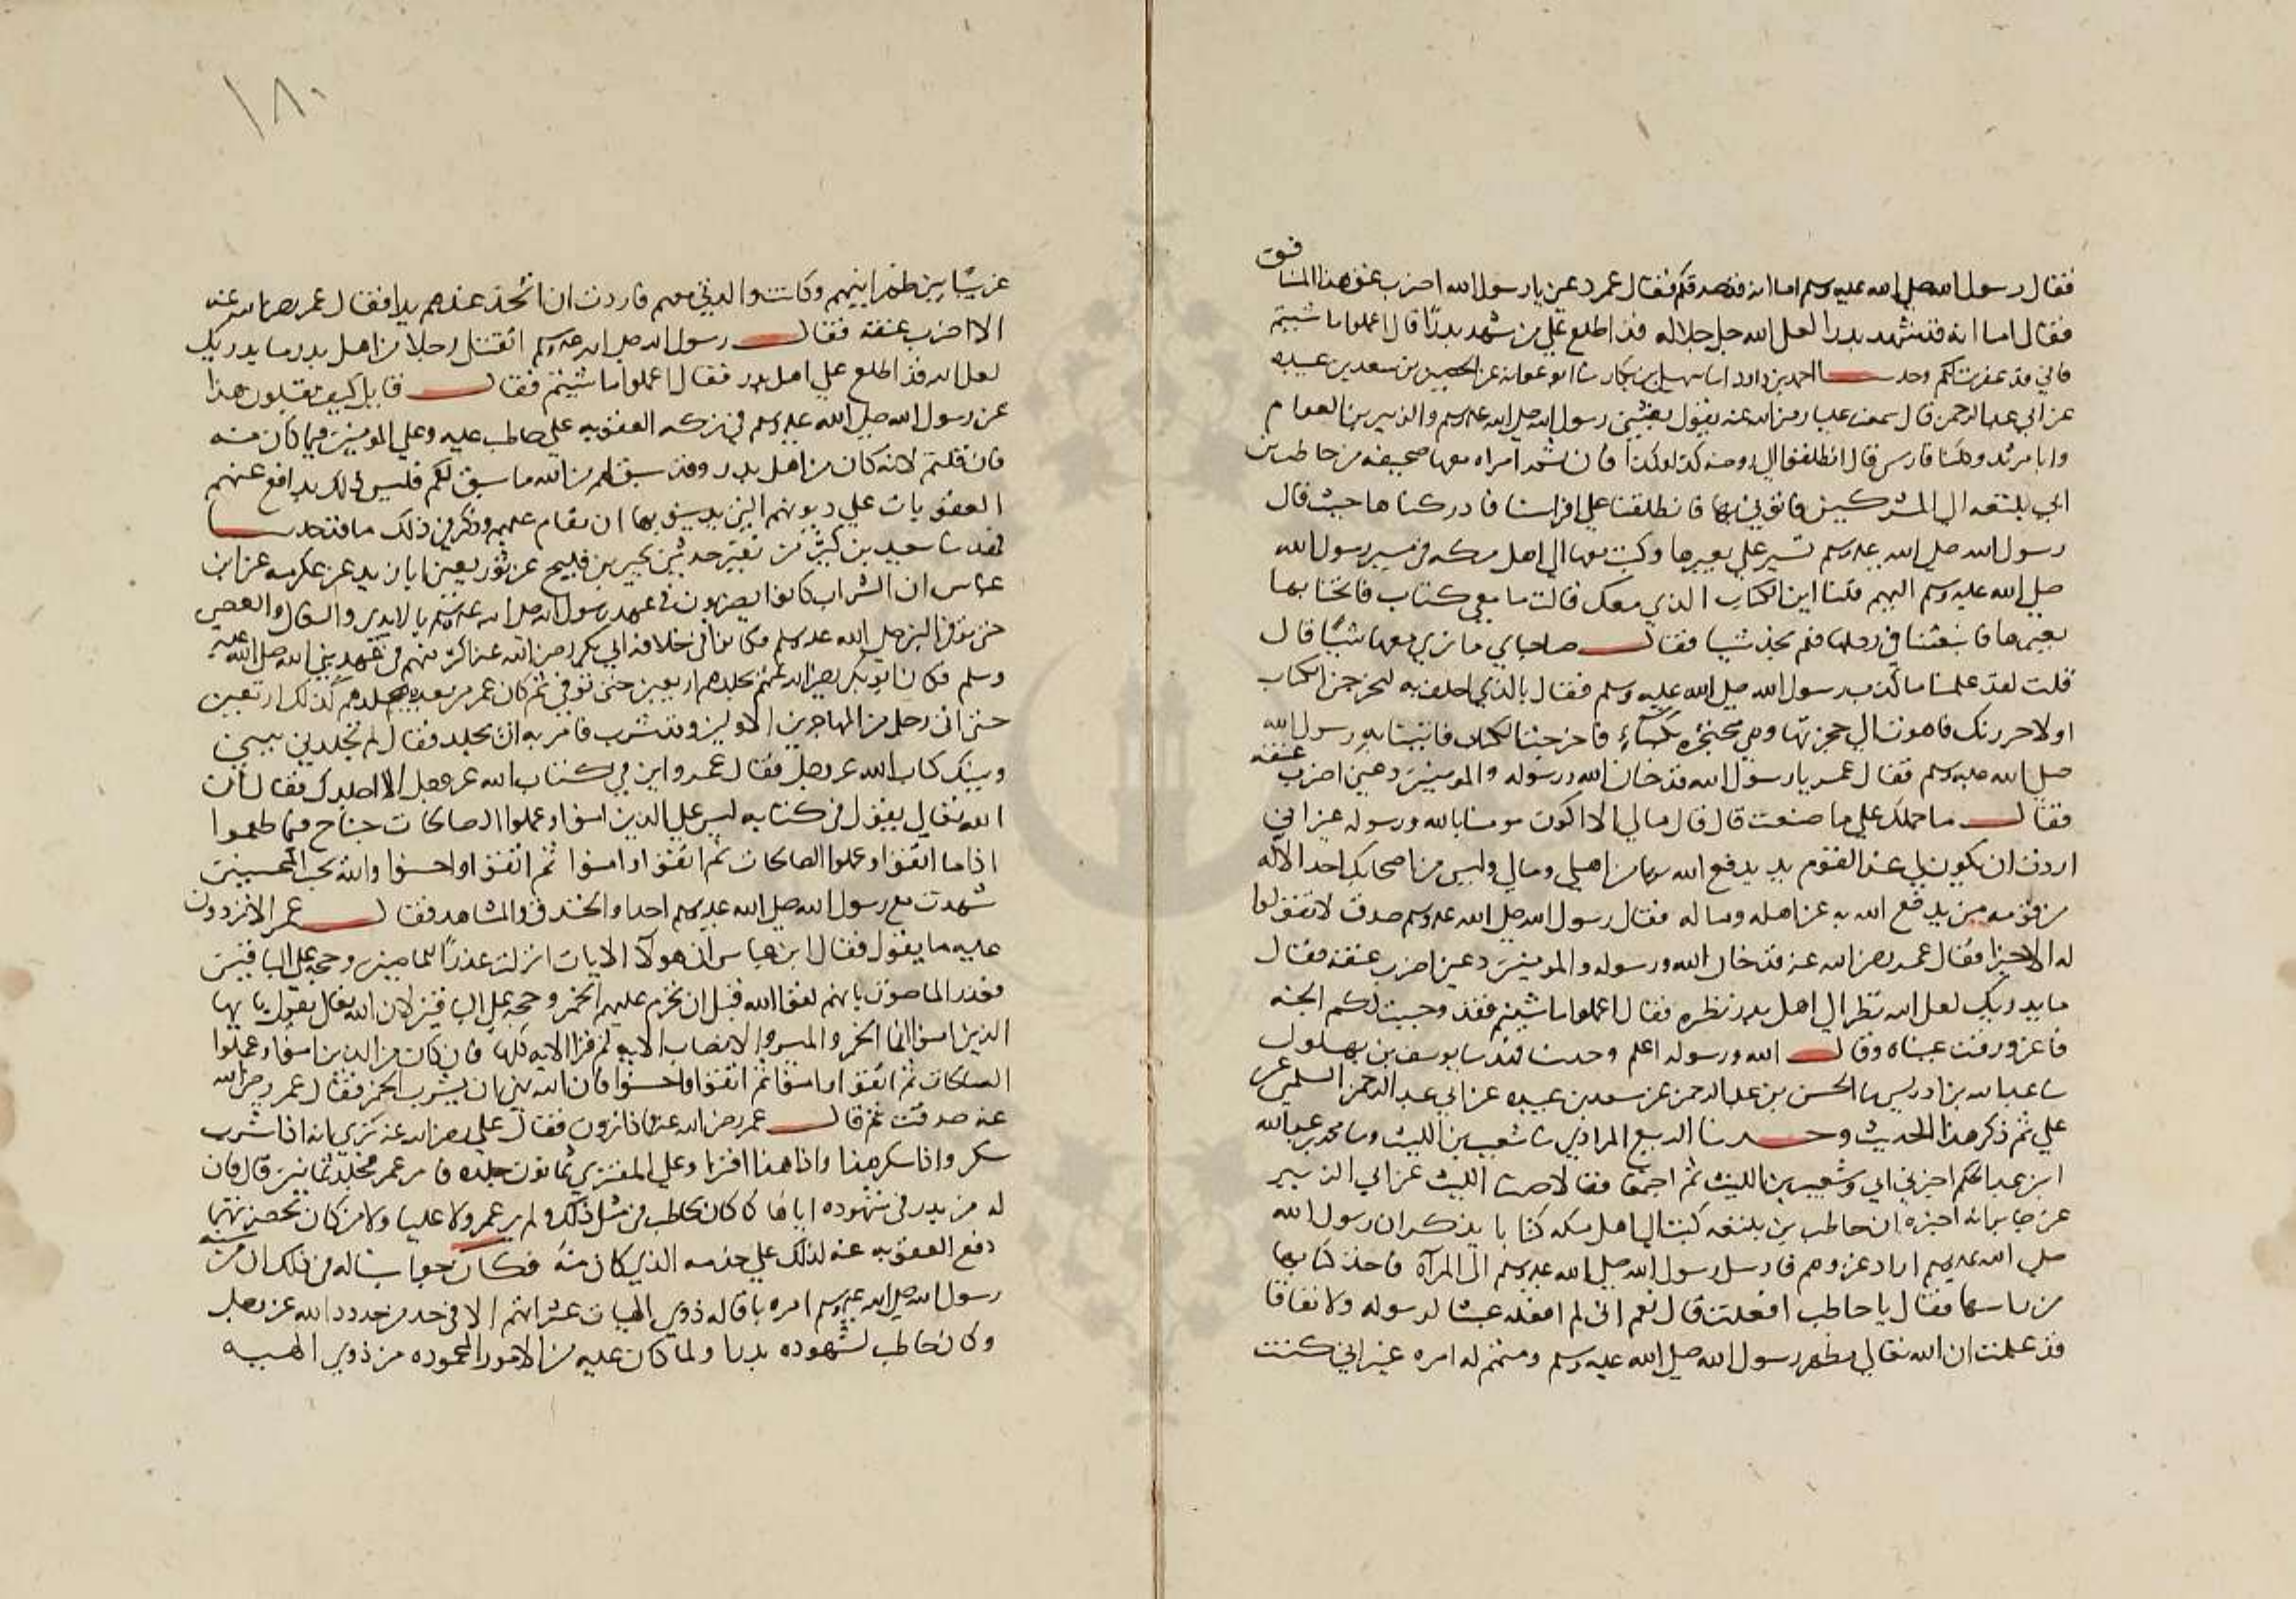 فقال رسول الله صلى الله عليه وسلم اما انه قد صدقكم فقال عمر دعنى يا رسول الله اضرب عنق هذا المنافق
فقال اما انه قد شهد بدرا لعل الله جل جلاله قد اطلع على من شهد بدرا قال اعملوا ما شيتم
فاني قد غفرت لكم وحدثنا احمد بن داود ثنا سهل بن بكار ثنا ابو عوانه عن الحصين عن سعد بن عبيده
عن ابي عبد الرحمن قال سمعت عليا رضي الله عنه يقول بعثني رسول الله صلى الله عليه وسلم والزبير بن العوام
وابا مرثد وكلنا فارس قال انطلقوا الي روضه كذا وكذا فان ثمه امراه معها صحيفه من حاطب بن
ابي بلتعه الي المشركين فاتوني بها فانطلقنا علي افراسنا فادركناها حيث قال
رسول الله صلي الله عليه وسلم تسير علي بعيرها وكتب معها الي اهل مكه في مسير رسول الله
صلي الله عليه وسلم اليهم قلنا اين الكتاب الذي معك قالت ما معي كتاب فانخنا بها
بعيرها فابتغينا في رحلها فلم نجد شيا فقال صاحباي ما نري معها شيا قال
قلت لقد علمنا ما كذب رسول الله صلي الله عليه وسلم فقال بالذي احلف به لتخرجن الكتاب
او لاجردنك فاهوت الي حجزتها وهي محتجزه بكساء فاخرجت الكتاب فاتينا به رسول الله
صلي الله عليه وسلم فقال عمر يا رسول الله قد خان الله ورسوله والمومنين دعني اضرب عنقه
فقال ما حملك علي ما صنعت قال قال مالي الا اكون مومنا بالله ورسوله غير اني
اردت ان يكون لي عند القوم يد يدفع الله بها عن اهلي ومالي وليس من اصحابك احد الا له
من قومه من يدفع الله به عن اهله وماله فقال رسول الله صلي الله عليه وسلم صدق لا تقولوا
له الا خيرا فقال عمر رضي الله عنه قد خان الله ورسوله والمومنين دعني اضرب عنقه فقال
ما يدريك لعل الله نظر الي اهل بدر نظره فقال اعملوا ما شيتم فقد وجبت لكم الجنه
فاغرورقت عيناه وقال الله ورسوله اعلم وحدثنا فهد ثنا يوسف بن بهلول
ثنا عبد الله بن ادريس ثنا الحسن بن عبد الرحمن عن سعد بن عبيده عن ابي عبد الرحمن السلمي عن
علي ثم ذكر هذا الحديث وحدثنا الربيع المرادي ثنا شعيب بن الليث وثنا محمد بن عبد الله
ابن عبد الحكم اخبرني ابي وشعيب بن الليث ثم اجمعا فقالا حدثنا الليث عن ابي الزبير
عن جابر انه اخبره ان حاطب بن بلتعه كتب الي اهل مكه كتابا يذكر ان رسول الله
صلي الله عليه وسلم اراد غزوهم فارسل رسول الله صلي الله عليه وسلم الى المرآه فاخذ كتابها
من راسها فقال يا حاطب افعلت قال نعم اني لم افعله غشا لرسوله ولا نفاقا
قد علمت ان الله تعالي مظهر رسول الله صلي الله عليه وسلم ومتمم له امره غير اني كنت
١٨٠
غريبا بين ظهرانيهم وكانت والدتي معهم فاردت ان اتخذ عندهم يدا فقال عمر رضي الله عنه
الا اضرب عنقه فقال رسول الله صلي الله عليه وسلم اتقتل رجلا من اهل بدر ما يدريك
لعل الله قد اطلع علي اهل بدر فقال اعملوا ما شيتم فقال قايل كيف تقبلون هذا
عن رسول الله صلي الله عليه وسلم في تركه العقوبه علي حاطب عليه وعلي المومنين فيما كان منه
فان قلتم لانه كان من اهل بدر وقد سبق لهم من الله ما سبق لكم فليس ذلك بدافع عنهم
العقوبات علي ذنوبهم التي يدينون بها ان تقام عليهم وذكر في ذلك ما قد حدثنا
فهد ثنا سعيد بن كثير بن عفير حدثني يحيى بن فليح عن ثور يعني ابا زيد عن عكرمه عن ابن
عباس ان الشراب كانوا يضربون في عهد رسول الله صلي الله عليه وسلم بالايدي والنعال والعصي
حتى توفي النبي صلي الله عليه وسلم فكانوا في خلافه ابي بكر رضي الله عنه اكثر منهم في عهد نبي الله صلي الله عليه
وسلم فكان ابو بكر رضي الله عنهم يجلدهم اربعين حتى توفي ثم كان عمر من بعده يجلدهم كذلك اربعين
حتى اتي رجل من المهاجرين الاولين وقد شرب فامر به ان يجلد فقال لم تجلدني بيني
وبينك كتاب الله عز وجل فقال عمر واين في كتاب الله عز وجل الا اجلدك فقال ان
الله تعالي يقول في كتابه ليس علي الذين امنوا وعملوا الصالحات جناح فيما طعموا
اذا ما اتقوا وعملوا الصالحات ثم اتقوا وامنوا ثم اتقوا واحسنوا والله يحب المحسنين
شهدت مع رسول الله صلي الله عليه وسلم احدا والخندق والمشاهد فقال عمر الا تردون
عليه ما يقول فقال ابن عباس ان هولآ الايات انزلت عذرا للماضين وحجه علي الباقين
فعذر الماضون بانهم لقوا الله قبل ان تحرم عليهم الخمر وحجه علي الباقين لان الله تعالي يقول يا يها
الذين امنوا انما الخمر والميسر والانصاب الايه ثم قرا الايه كلها فان كان من الذين امنوا وعملوا
الصالحات ثم اتقوا وامنوا ثم اتقوا واحسنوا فان الله نهى ان يشرب الخمر فقال عمر رضي الله
عنه صدقت ثم قال عمر رضي الله عنه فماذا ترون فقال علي رضي الله عنه نري انه اذا شرب
سكر واذا سكر هذا واذا هذا افترا وعلي المفتري ثمانون جلده فامر عمر فجلد ثمانين قال فان
له من بدر في شهوده اياها كما كان لحاطب في مثل ذلك ولم ير عمر ولا عليا ولا من كان بحضرتهما
دفع العقوبه عنه لذلك علي جرمه الذي كان منه فكان جوابنا له في ذلك ان من سنه
رسول الله صلي الله عليه وسلم امره باقاله ذوي الهيات عثراتهم الا في حد من حدود الله عز وجل
وكان لحاطب لشهوده بدرا ولما كان عليه من الامور المحموده من ذوي الهييه